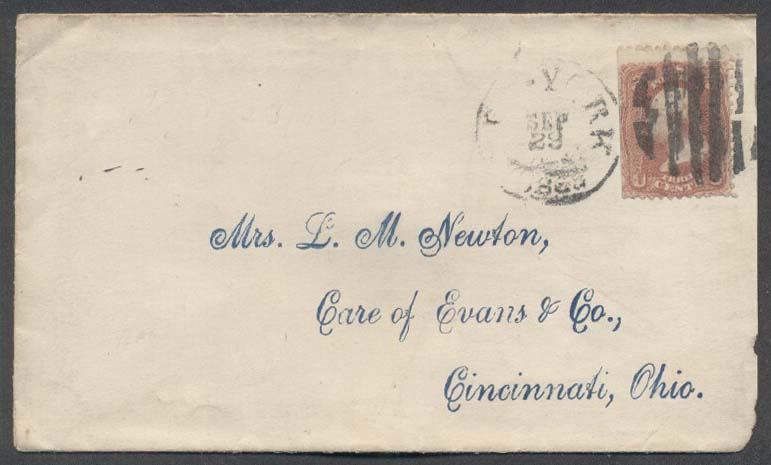 YORK
SEP
29
THREE
U CENTS
Mrs. L. M. Newton,
Care of Evans & Co.,
Cincinnati, Ohio.